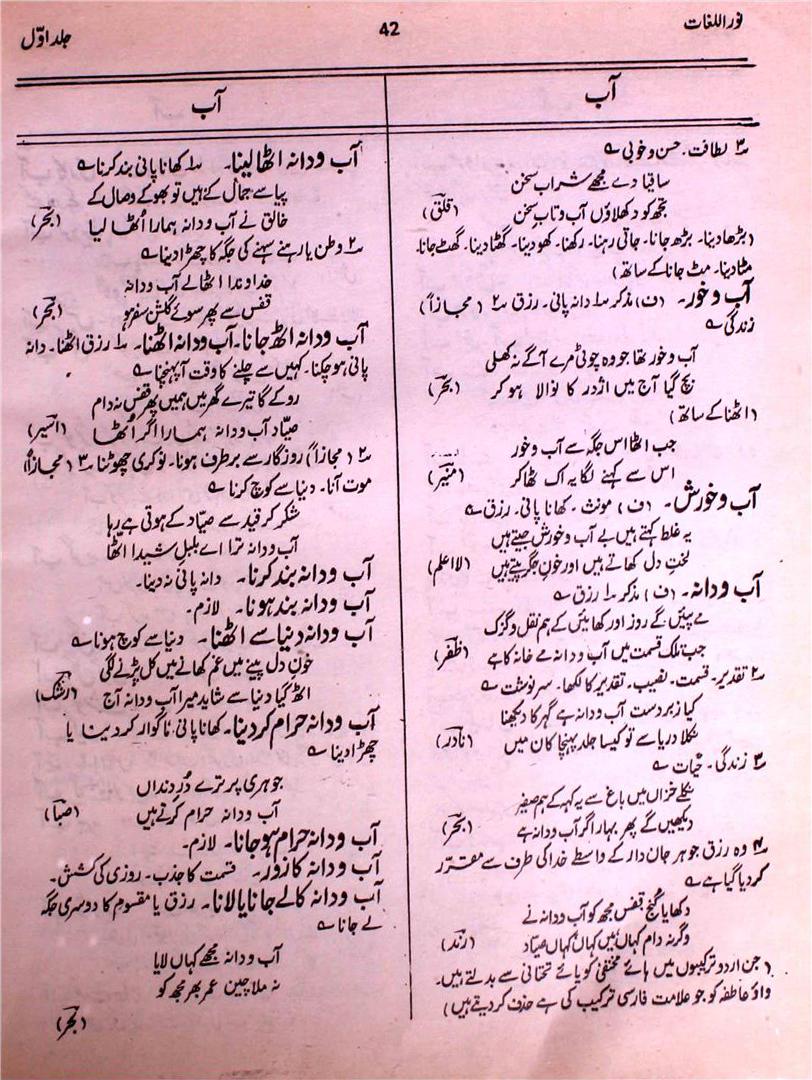 نوراللغات
42
جلد اوّل
آب
آب
۳ لطافت۔ حسن و خوبی ؎
ساقیا دے مجھے شراب سخن
تجھ کو دکھلاؤں آب و تابِ سخن (قلق)
(بڑھا دینا۔ بڑھ جانا۔ جاتی رہنا۔ رکھنا۔ کھو دینا۔ گھٹا دینا۔ گھٹ جانا۔
مٹا دینا۔ مٹ جانا کے ساتھ)
آب و خور۔ (ف) مذکر ۱ دانہ پانی۔ رزق ۲ (مجازاً)
زندگی ؎
آب و خور تھا جو وہ چوٹی مرے آگے نہ کھلی
بچ گیا آج میں اژدر کا نوالا ہو کر (بحر)
(اٹھنا کے ساتھ)
جب اٹھا اس جگہ سے آب و خور
اس سے کہنے لگا یہ اک ٹھاکر (منیر)
آب و خورش۔ (ف) مونث۔ کھانا پانی۔ رزق ؎
یہ غلط کہتے ہیں بے آب و خورش جیتے ہیں
لختِ دل کھاتے ہیں اور خونِ جگر پیتے ہیں (لااعلم)
آب و دانہ۔ (ف) مذکر ۱ رزق ؎
مے پئیں گے روز اور کھائیں گے ہم نقل و گزک
جب تلک قسمت میں آب و دانہ مے خانہ کا ہے (ظفر)
۲ تقدیر۔ قسمت۔ نصیب۔ تقدیر کا لکھا۔ سرنوشت ؎
کیا زبردست آب و دانہ ہے گہر کا دیکھنا
نکلا دریا سے تو کیسا جلد پہنچا کان میں (نادر)
۳ زندگی۔ حیات ؎
نکلے خزاں میں باغ سے یہ کہہ کے ہم صفیر
دیکھیں گے پھر بہار اگر آب و دانہ ہے (بحر)
۴ وہ رزق جو ہر جان دار کے واسطے خدا کی طرف سے مقرّر
کر دیا گیا ہے ؎
دکھایا کنج قفس مجھ کو آب و دانہ نے
وگرنہ دام کہاں میں کہاں کہاں صیّاد (رند)
(جن اردو ترکیبوں میں ہائے مختفی کو یائے تحتانی سے بدلتے ہیں۔
واؤ عاطفہ کو جو علامت فارسی ترکیب کی ہے حذف کر دیتے ہیں)
آب و دانہ اٹھا لینا۔ ۱ کھانا پانی بند کرنا ؎
پیاسے جمال کے ہیں تو بھوکے وصال کے
خالق نے آب و دانہ ہمارا اُٹھا لیا (بحر)
۲ وطن یا رہنے سہنے کی جگہ کا چھڑا دینا ؎
خداوندا اٹھا لے آب و دانہ
قفس سے پھر سوئے گلشن سفر ہو (بحر)
آب و دانہ اٹھ جانا۔ آب و دانہ اٹھنا۔ ۱ رزق اٹھنا۔ دانہ
پانی ہو چکنا۔ کہیں سے چلنے کا وقت آ پہنچنا ؎
روکے گا تیرے گھر میں ہمیں پھر قفس نہ دام
صیّاد آب و دانہ ہمارا اگر اُٹھا (اسیر)
۲ (مجازاً) روزگار سے برطرف ہونا۔ نوکری چھوٹنا ۳ (مجازاً)
موت آنا۔ دنیا سے کوچ کرنا ؎
شکر کر قید سے صیّاد کے ہوتی ہے رہا
آب و دانہ ترا اے بلبلِ شیدا اٹھا
آب و دانہ بند کرنا۔ دانہ پانی نہ دینا۔
آب و دانہ بند ہونا۔ لازم۔
آب و دانہ دنیا سے اٹھنا۔ دنیا سے کوچ ہونا ؎
خونِ دل پینے میں غم کھانے میں کل پڑنے لگی
اٹھ گیا دنیا سے شاید میرا آب و دانہ آج (رشک)
آب و دانہ حرام کر دینا۔ کھانا پانی ناگوار کر دینا یا
چھڑا دینا ؎
جوہری پر ترے دُرِ دنداں
آب و دانہ حرام کرتے ہیں (صبا)
آب و دانہ حرام ہو جانا۔ لازم۔
آب و دانہ کا زور۔ قسمت کا جذب۔ روزی کی کشش۔
آب و دانہ کا لے جانا یا لانا۔ رزق یا مقسوم کا دوسری جگہ
لے جانا ؎
آب و دانہ مجھے کہاں لایا
نہ ملا چین عمر بھر مجھ کو
(بحر)